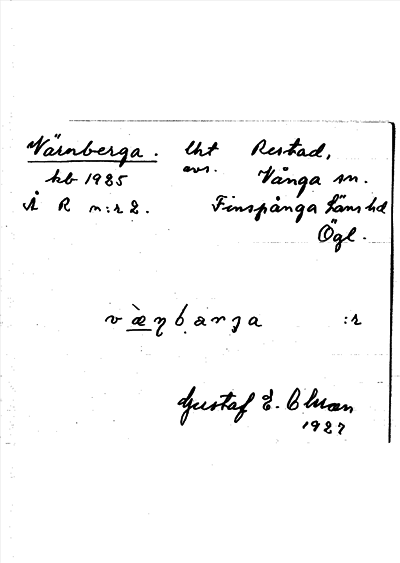 Värnberga. lht Restad,
avs.
kb 1925 Vånga sn.
Å R n:r 2. Finspånga läns hd
Ögl.
v æ̀ ɳ b a r ɟ a :r
Gustaf E. Olsson
1927